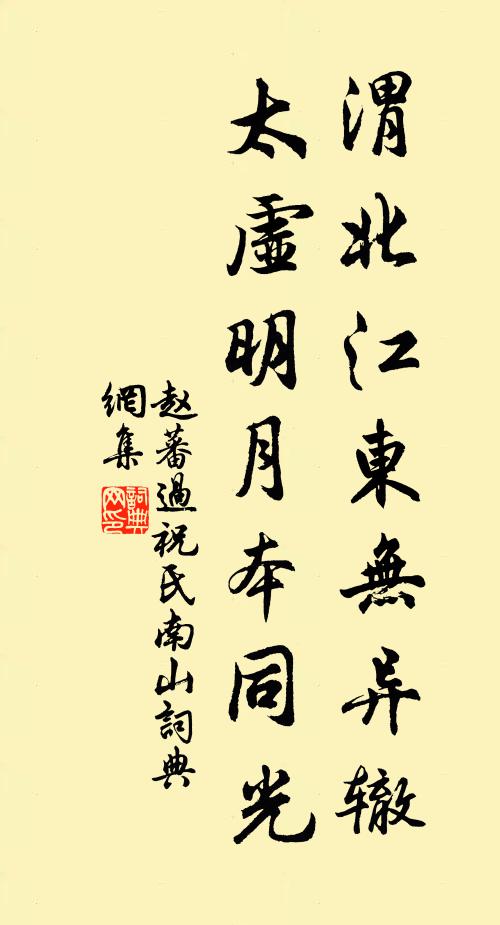 渭北江東無异辙
太虛明月本同光
赵蕃過祝氏南山詞典
網集
詞典網印